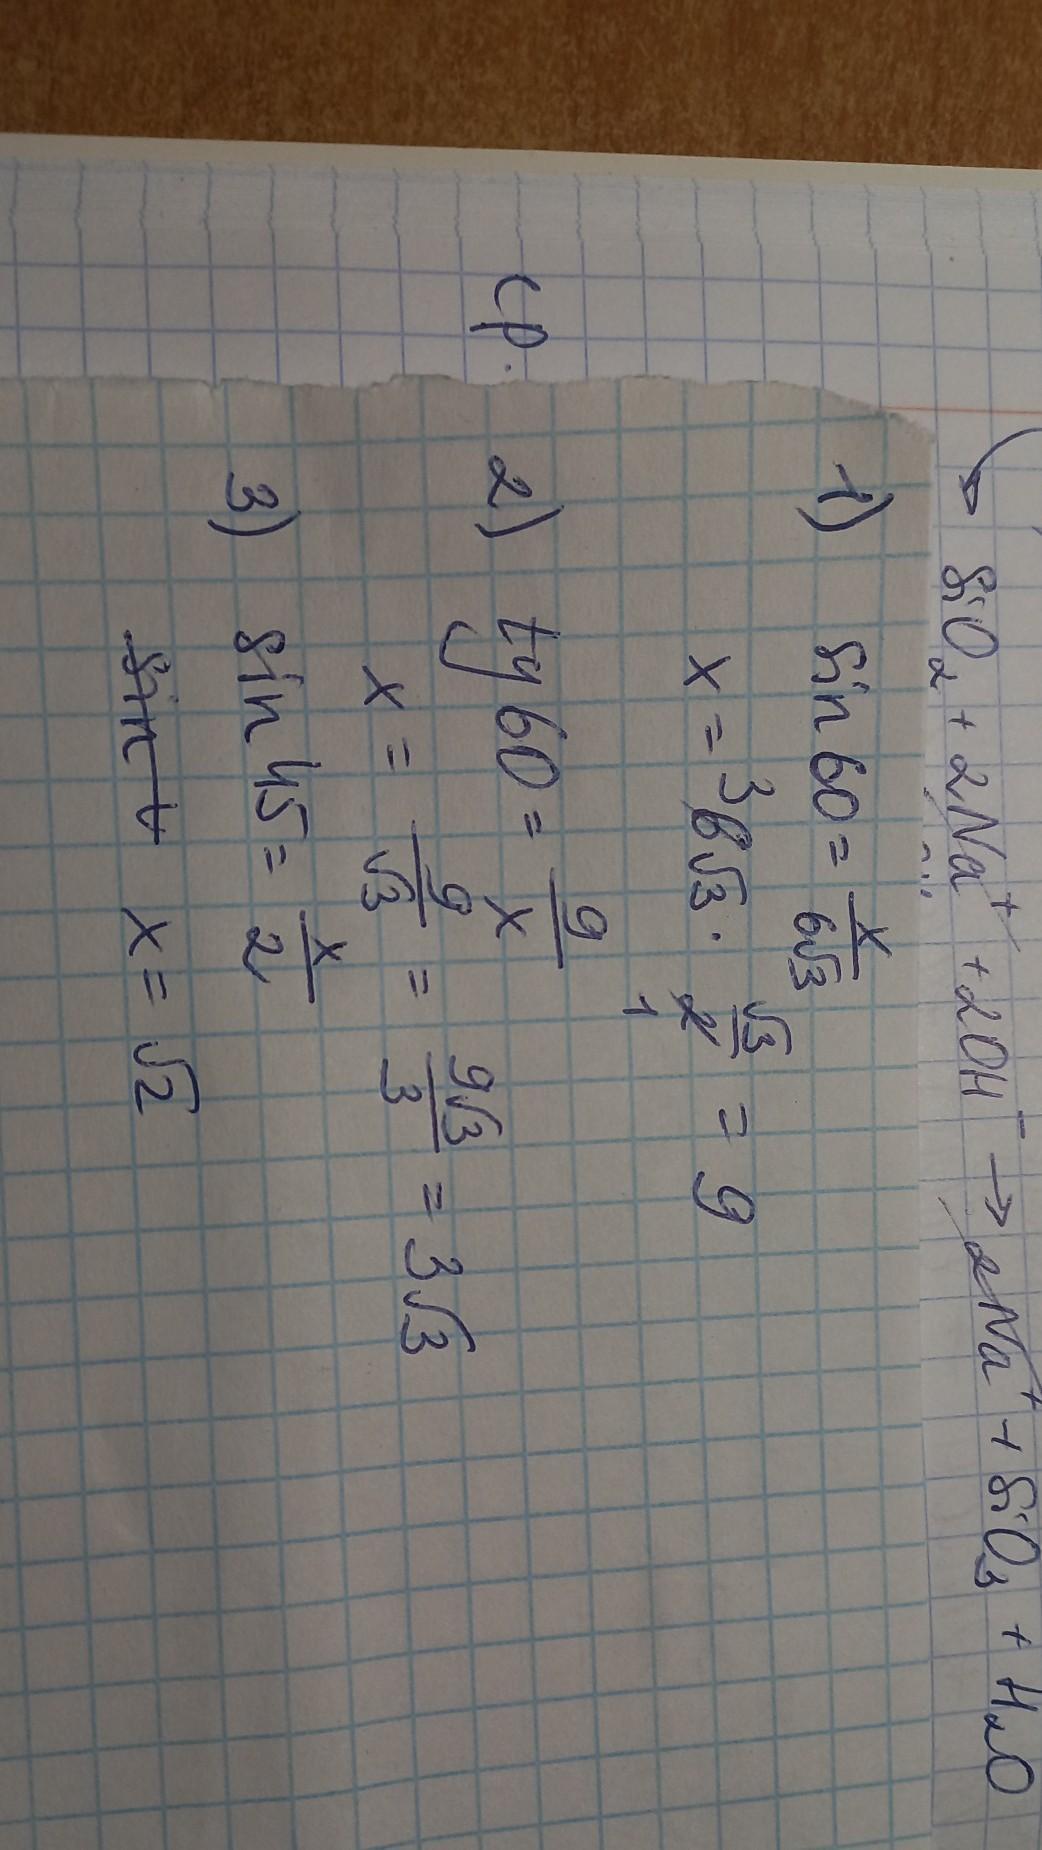 SiO₂ + 2Na⁺ + 2OH⁻ → 2Na⁺ + SiO₃ + H₂O
1) sin 60 = x/6√3
x = ³6√3 · √3/2 = 9
1
ср.
2) tg 60 = 9/x
x = 9/√3 = 9√3/3 = 3√3
3) sin 45 = x/2
x = √2